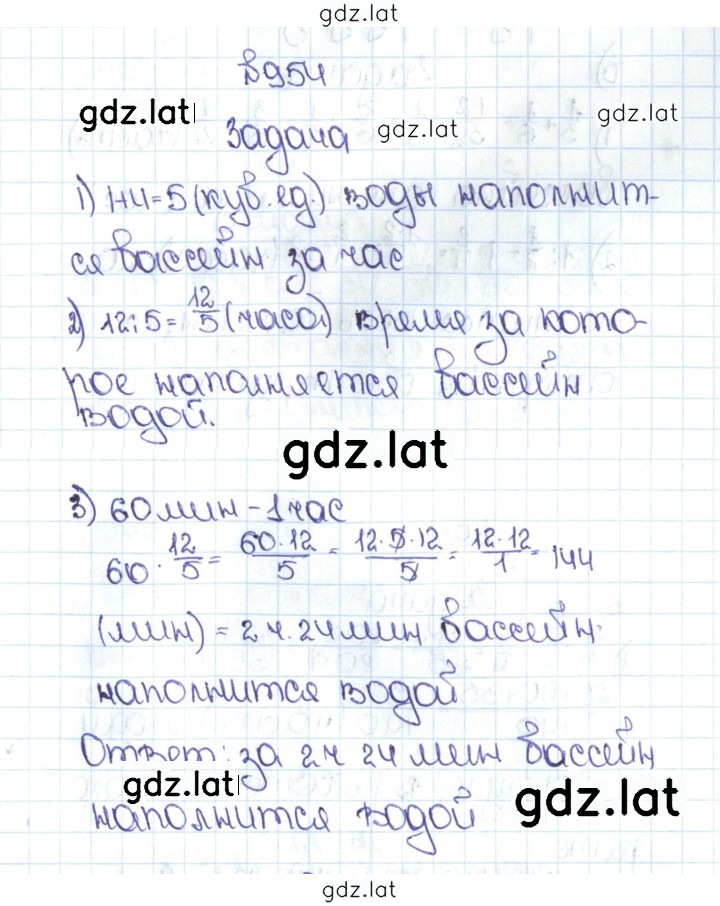 gdz.lat
В954
gdz.lat
gdz.lat
gdz.lat
Задача
1) 1+4=5 (куб. ед.) воды наполнит-
ся бассейн за час
2) 12:5= 12/5 (часа) время за кото-
рое наполняется бассейн
водой.
gdz.lat
3) 60 мин - 1 час
60 · 12/5 = 60·12/5 = 12·5·12/5 = 12·12/1 = 144
(мин) = 2 ч. 24 мин бассейн
наполнится водой
Ответ: за 2ч 24 мин бассейн
gdz.lat
наполнится водой
gdz.lat
gdz.lat